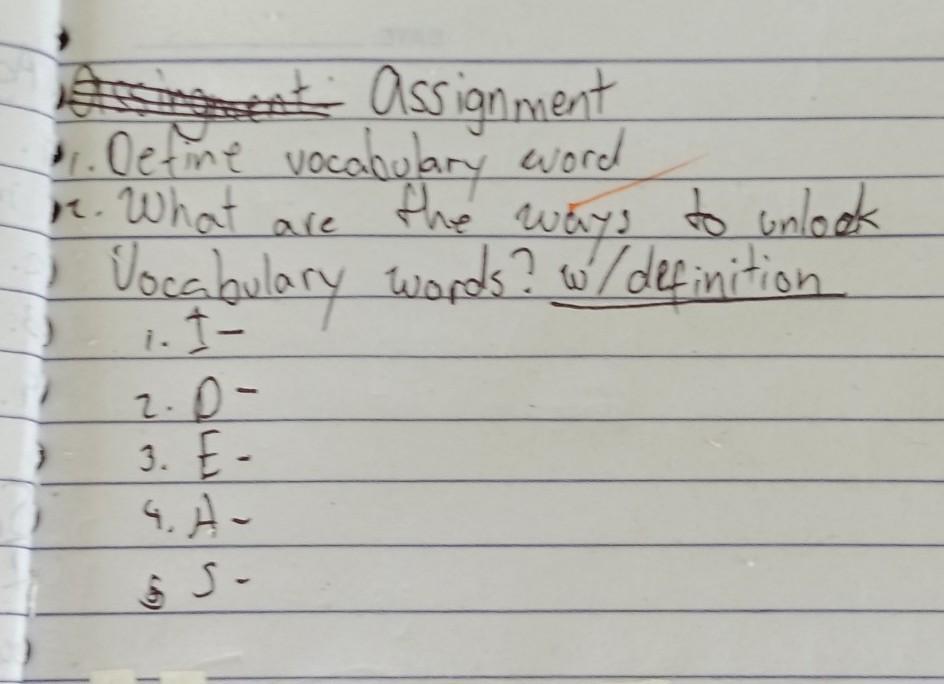 Assignment
1. Define vocabulary word
2. What are the ways to unlock
Vocabulary words? w/definition
1. I-
2. D-
3. E-
4. A-
5 S-